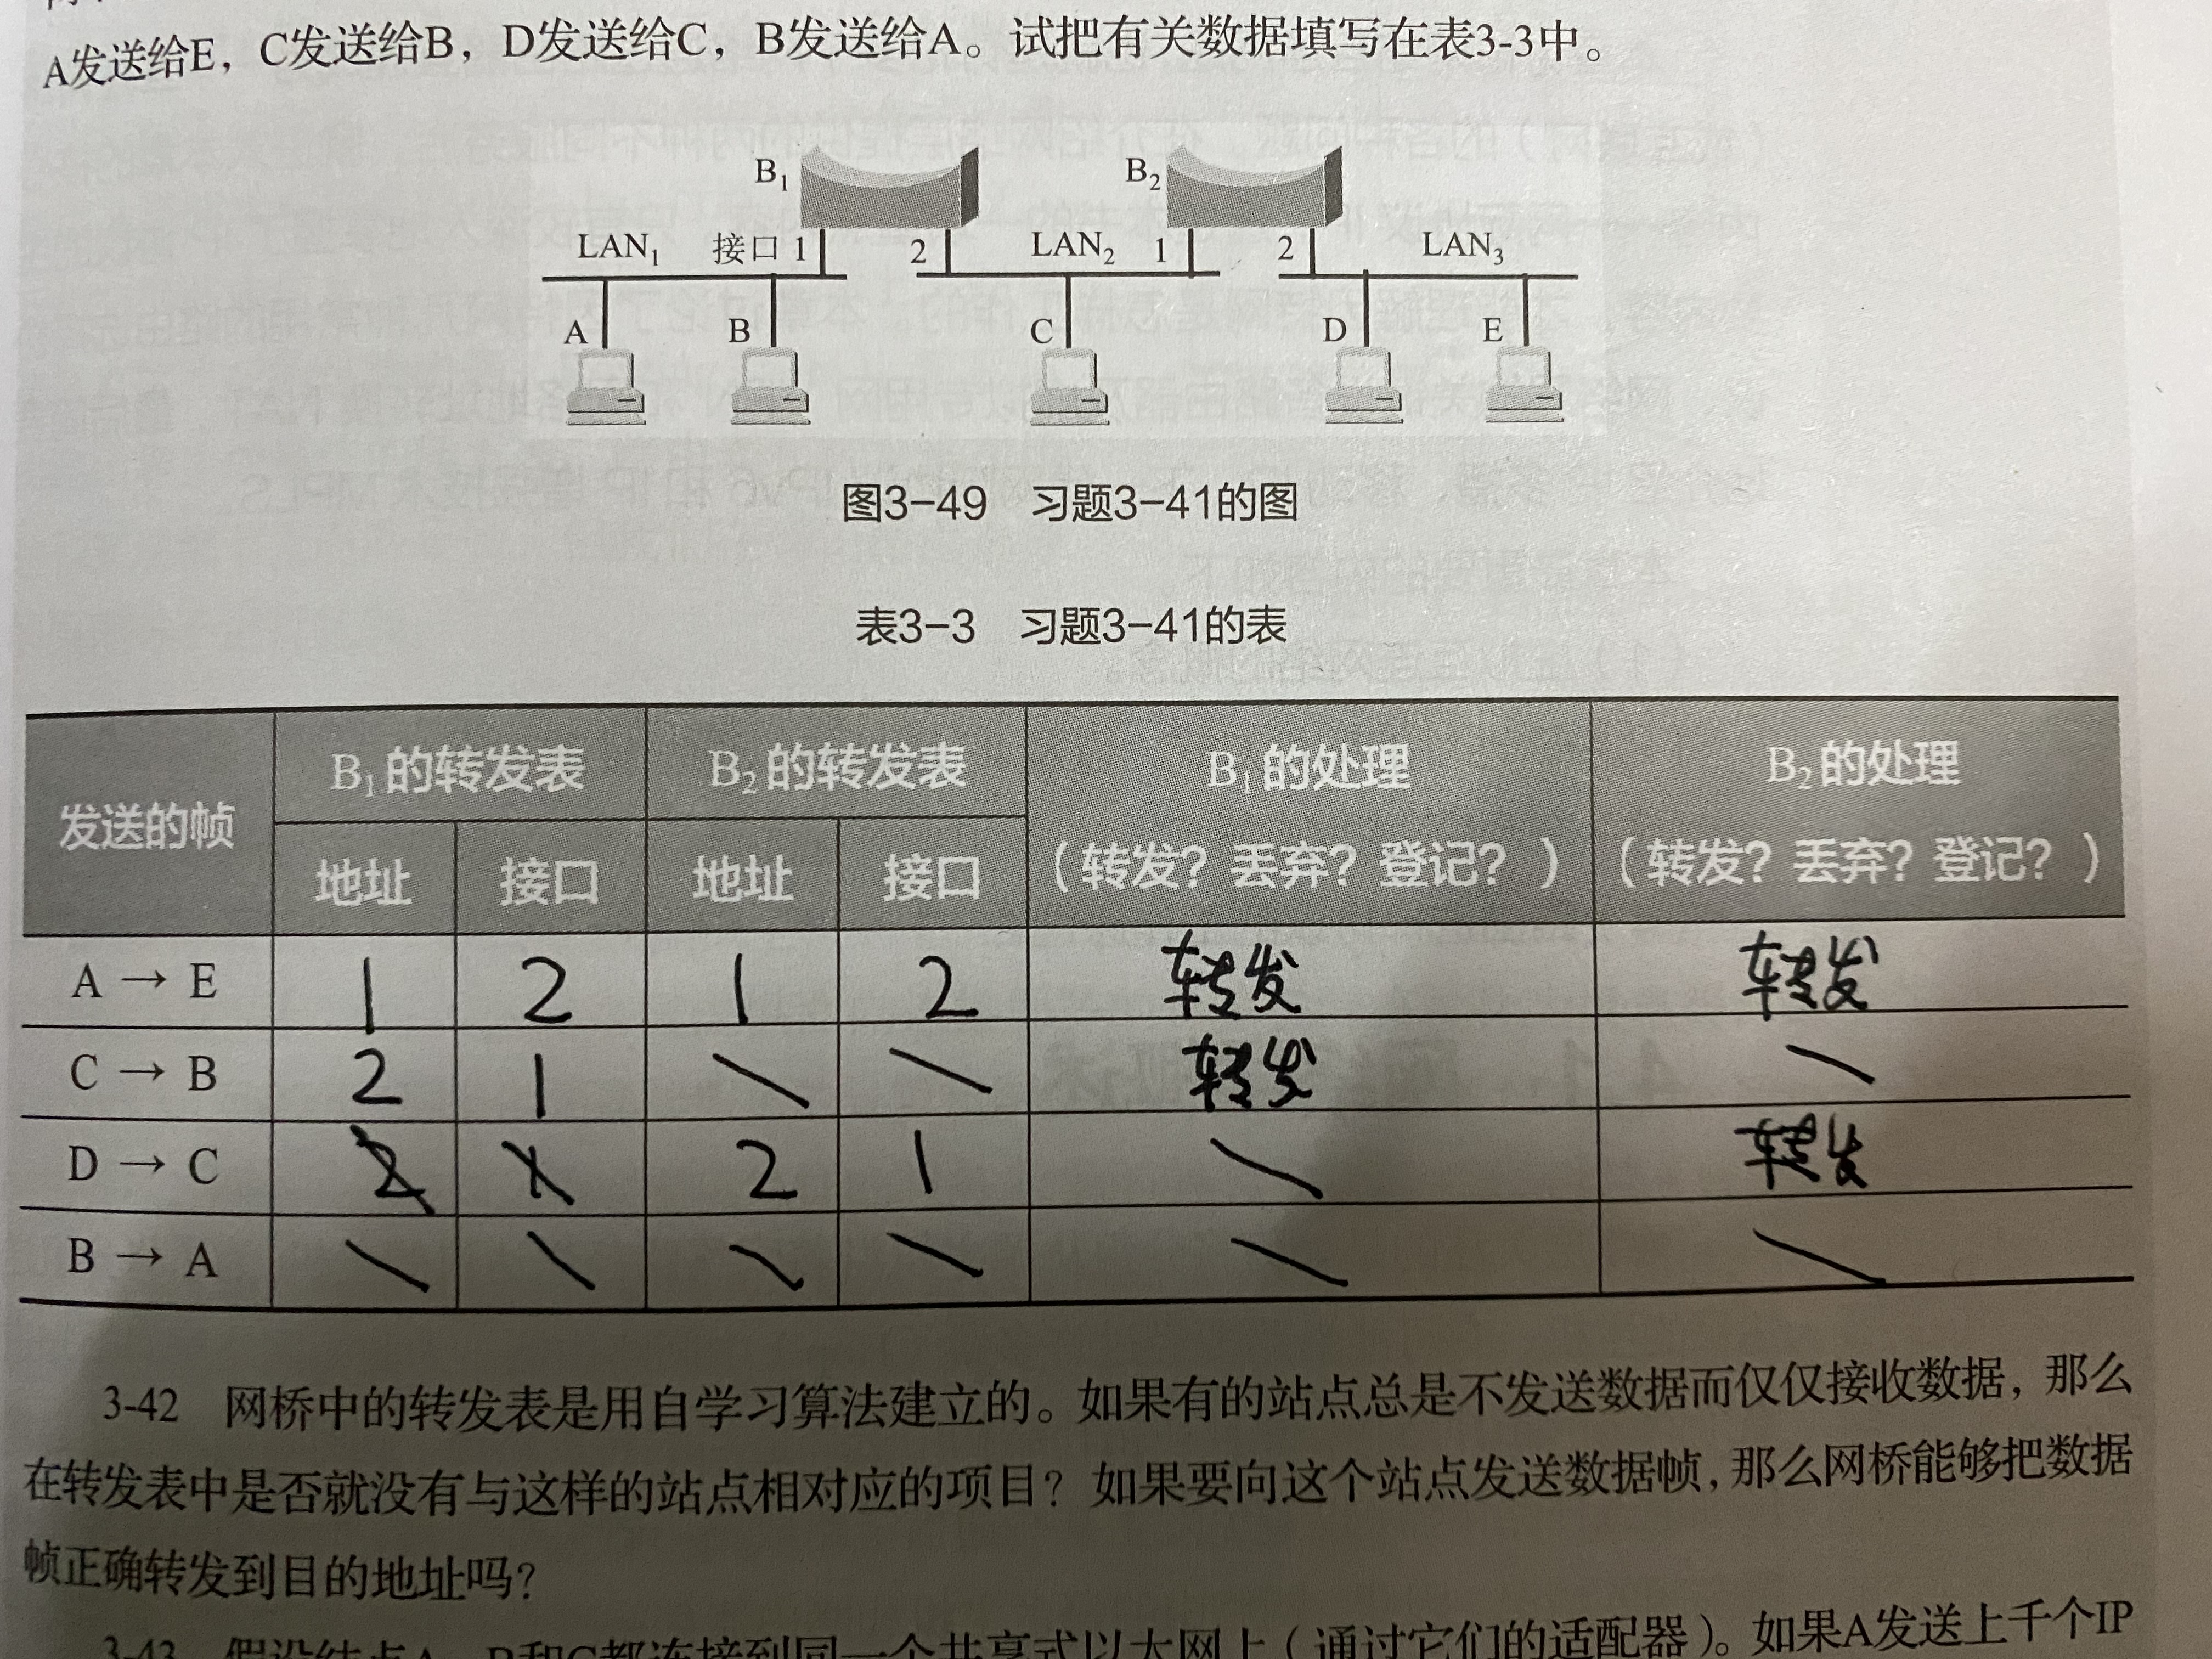 A发送给E，C发送给B，D发送给C，B发送给A。试把有关数据填写在表3-3中。
B₁ B₂
LAN₁ 接口 1 2 LAN₂ 1 2 LAN₃
A B C D E
图3-49 习题3-41的图
表3-3 习题3-41的表
发送的帧 B₁的转发表 B₂的转发表 B₁的处理 B₂的处理
地址 接口 地址 接口 （转发？丢弃？登记？） （转发？丢弃？登记？）
A → E 1 2 1 2 转发 转发
C → B 2 1 \ \ 转发 \
D → C 2 1 2 1 \ 转发
B → A \ \ \ \ \ \
3-42 网桥中的转发表是用自学习算法建立的。如果有的站点总是不发送数据而仅仅接收数据，那么
在转发表中是否就没有与这样的站点相对应的项目？如果要向这个站点发送数据帧，那么网桥能够把数据
帧正确转发到目的地址吗？
3-43 假设结点A、B和C都连接到同一个共享式以太网上（通过它们的适配器）。如果A发送上千个IP